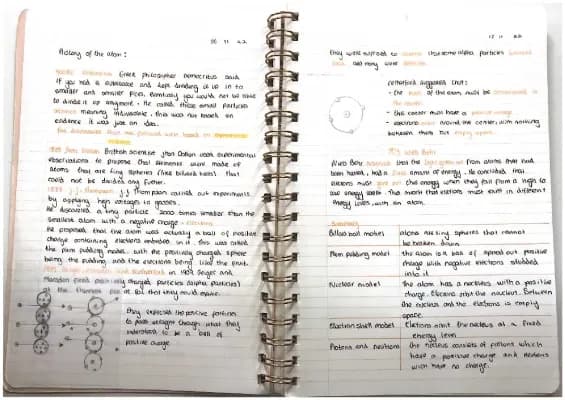 30 11 22
History of the atom:
Greek philosopher Democritus said
if you had a substance and kept dividing it up in to
smaller and smaller pieces, eventually you would not be able
to divide it up anymore. He called these small particles
meaning indivisible, this was not based on
evidence it was just an idea.
John Dalton British scientist John Dalton used experimental
observations to propose that elements were made of
atoms that are tiny spheres (like billiard balls). that
could not be divided any further.
J.J. Thompson J.J Thompson carried out experiments
by applying high voltages to gasses.
He discovered a tiny particle 2000 times smaller than the
smallest atom with a negative charge.
He proposed that the atom was actually a ball of positive
charge containing electrons embedded in it. this was called
the plum pudding model, with the positively charged sphere
being the pudding, and the electrons being like the fruit.
in Geiger and
Marsden fired positively charged particles (alpha particles)
at the thinnest piece of foil that they could make.
they expected the positive particles
to pass straight through what they
understood to be a ball of
positive charge.
they were surprised to that some alpha particles
back and many were
Rutherford suggested that:
- the of the atom must be
the centre.
- this center must have a positive charge
- electrons around the center with nothing
between them but empty space.
Niels Bohr that the light from atoms that had
been heated, had a amount of energy. He concluded that
electrons must give this energy when they fall from a high to
low energy level. This meant that electrons must exist in different
energy levels with an atom.
Summary
Billiard ball model atoms are tiny spheres that cannot
be broken down
Plum pudding model the atom is a ball of spread out positive
charge with negative electrons studded
into it
Nuclear model The atom has a nucleus with a positive
charge. Electrons orbit the nucleus. Between
the nucleus and the electrons is empty
space.
Electron shell model Electrons orbit the nucleus at a fixed
energy level
Protons and neutrons The nucleus consists of protons which
have a positive charge and neutrons
which have no charge.